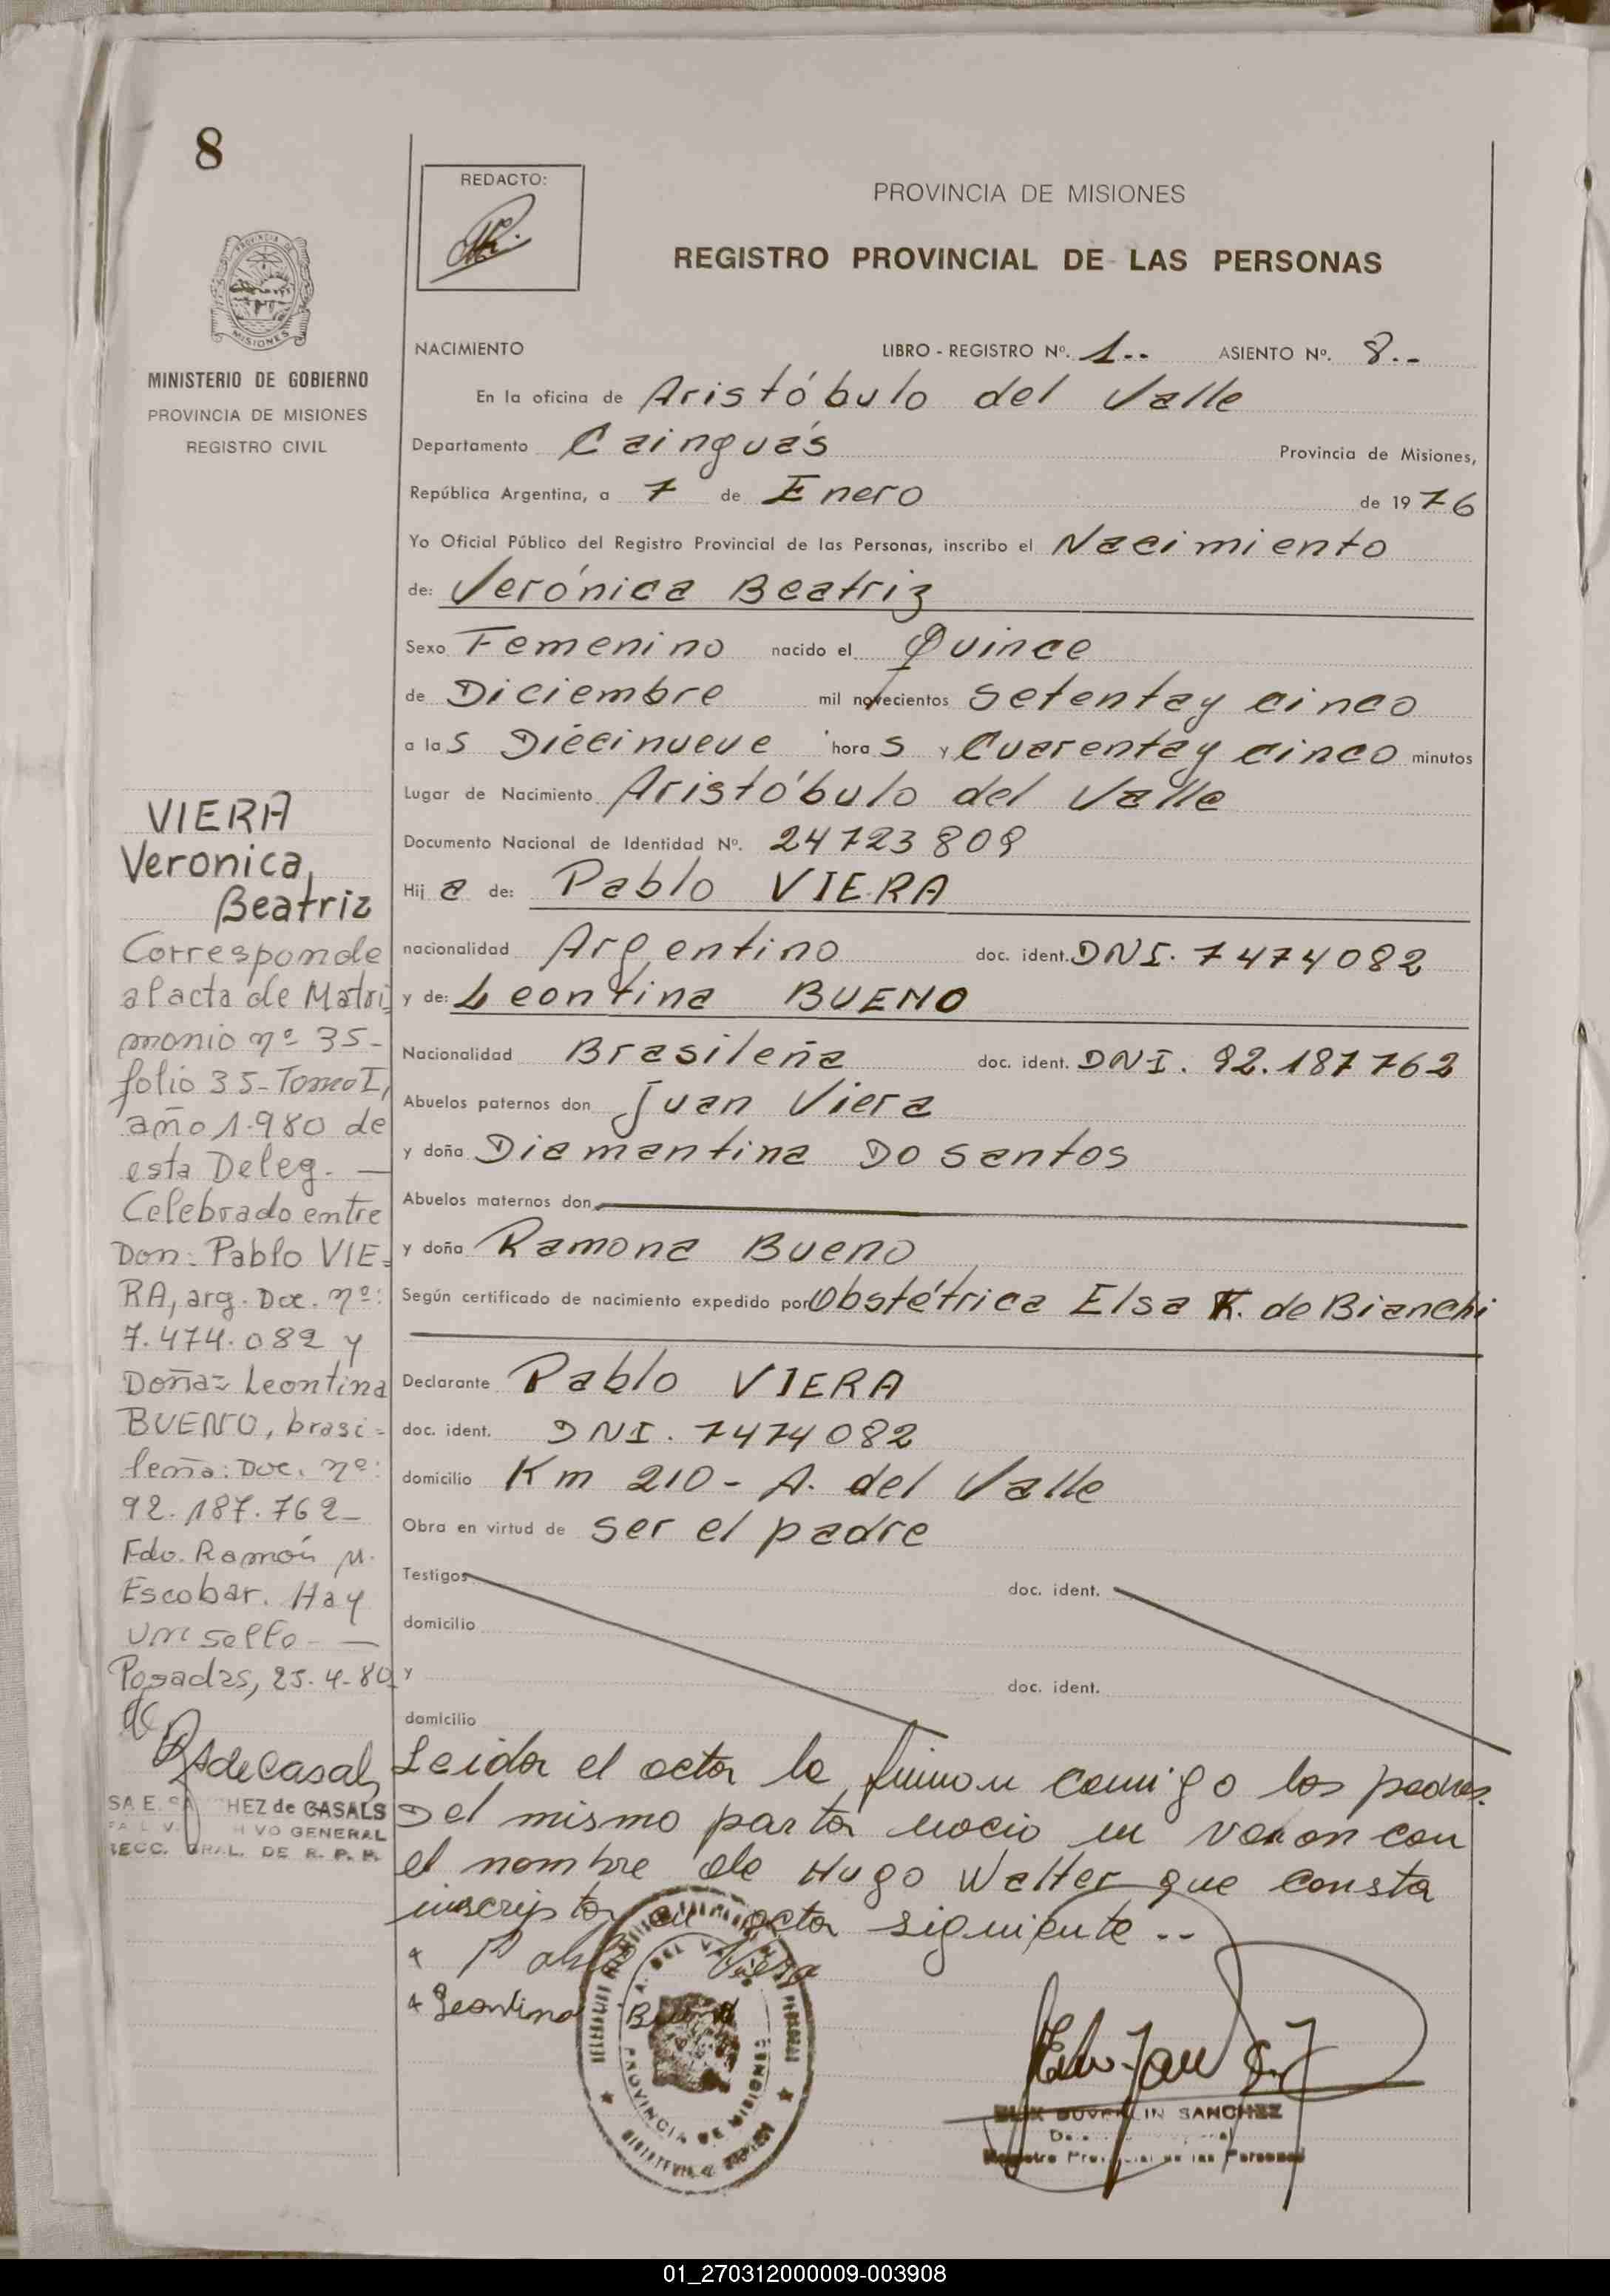 8
REDACTO:
PROVINCIA DE MISIONES
REGISTRO PROVINCIAL DE LAS PERSONAS
MISIONES
MINISTERIO DE GOBIERNO
PROVINCIA DE MISIONES
REGISTRO CIVIL
NACIMIENTO LIBRO - REGISTRO Nº. 1.. ASIENTO Nº. 8.-
En la oficina de Aristóbulo del Valle
Departamento Cainguás Provincia de Misiones,
República Argentina, a 7 de Enero de 1976
Yo Oficial Público del Registro Provincial de las Personas, inscribo el Nacimiento
de: Verónica Beatriz
Sexo Femenino nacido el Quince
de Diciembre mil novecientos setenta y cinco
a las Diecinueve horas y Cuarenta y cinco minutos
Lugar de Nacimiento Aristóbulo del Valle
Documento Nacional de Identidad Nº. 24723809
Hija de: Pablo VIERA
nacionalidad Argentino doc. ident. DNI. 7474082
y de: Leontina BUENO
Nacionalidad Brasileña doc. ident. DNI. 92.187762
Abuelos paternos don Juan Viera
y doña Diamantina Do Santos
Abuelos maternos don
y doña Ramona Bueno
Según certificado de nacimiento expedido por Obstétrica Elsa K. de Bianchi
Declarante Pablo VIERA
doc. ident. DNI. 7474082
domicilio Km 210 - A. del Valle
Obra en virtud de ser el padre
Testigos doc. ident.
domicilio
y doc. ident.
domicilio
Leida el acta la firman comigo los padres.
Del mismo parto nacio un varon con
el nombre de Hugo Walter que consta
inscripto en acta siguiente..
Pablo Viera
Leontina Bueno
VIERA
Veronica
Beatriz
Corresponde
al acta de Matri
monio nº 35-
folio 35-Tomo I,
año 1.980 de
esta Deleg. —
Celebrado entre
Don: Pablo VIE=
RA, arg. Doc. nº:
7.474.082 y
Doña= Leontina
BUENO, brasi=
leña: Doc. nº:
92.187.762-
Fdo. Ramón M.
Escobar. Hay
un sello — —
Posadas, 25-4-80
de Casals
HEZ de CASALS
VO GENERAL
GRAL. DE R. P. P.
A. DEL VALLE
PROVINCIA DE MISIONES
SANCHEZ
Registro Provincial de las Personas
01_270312000009-003908